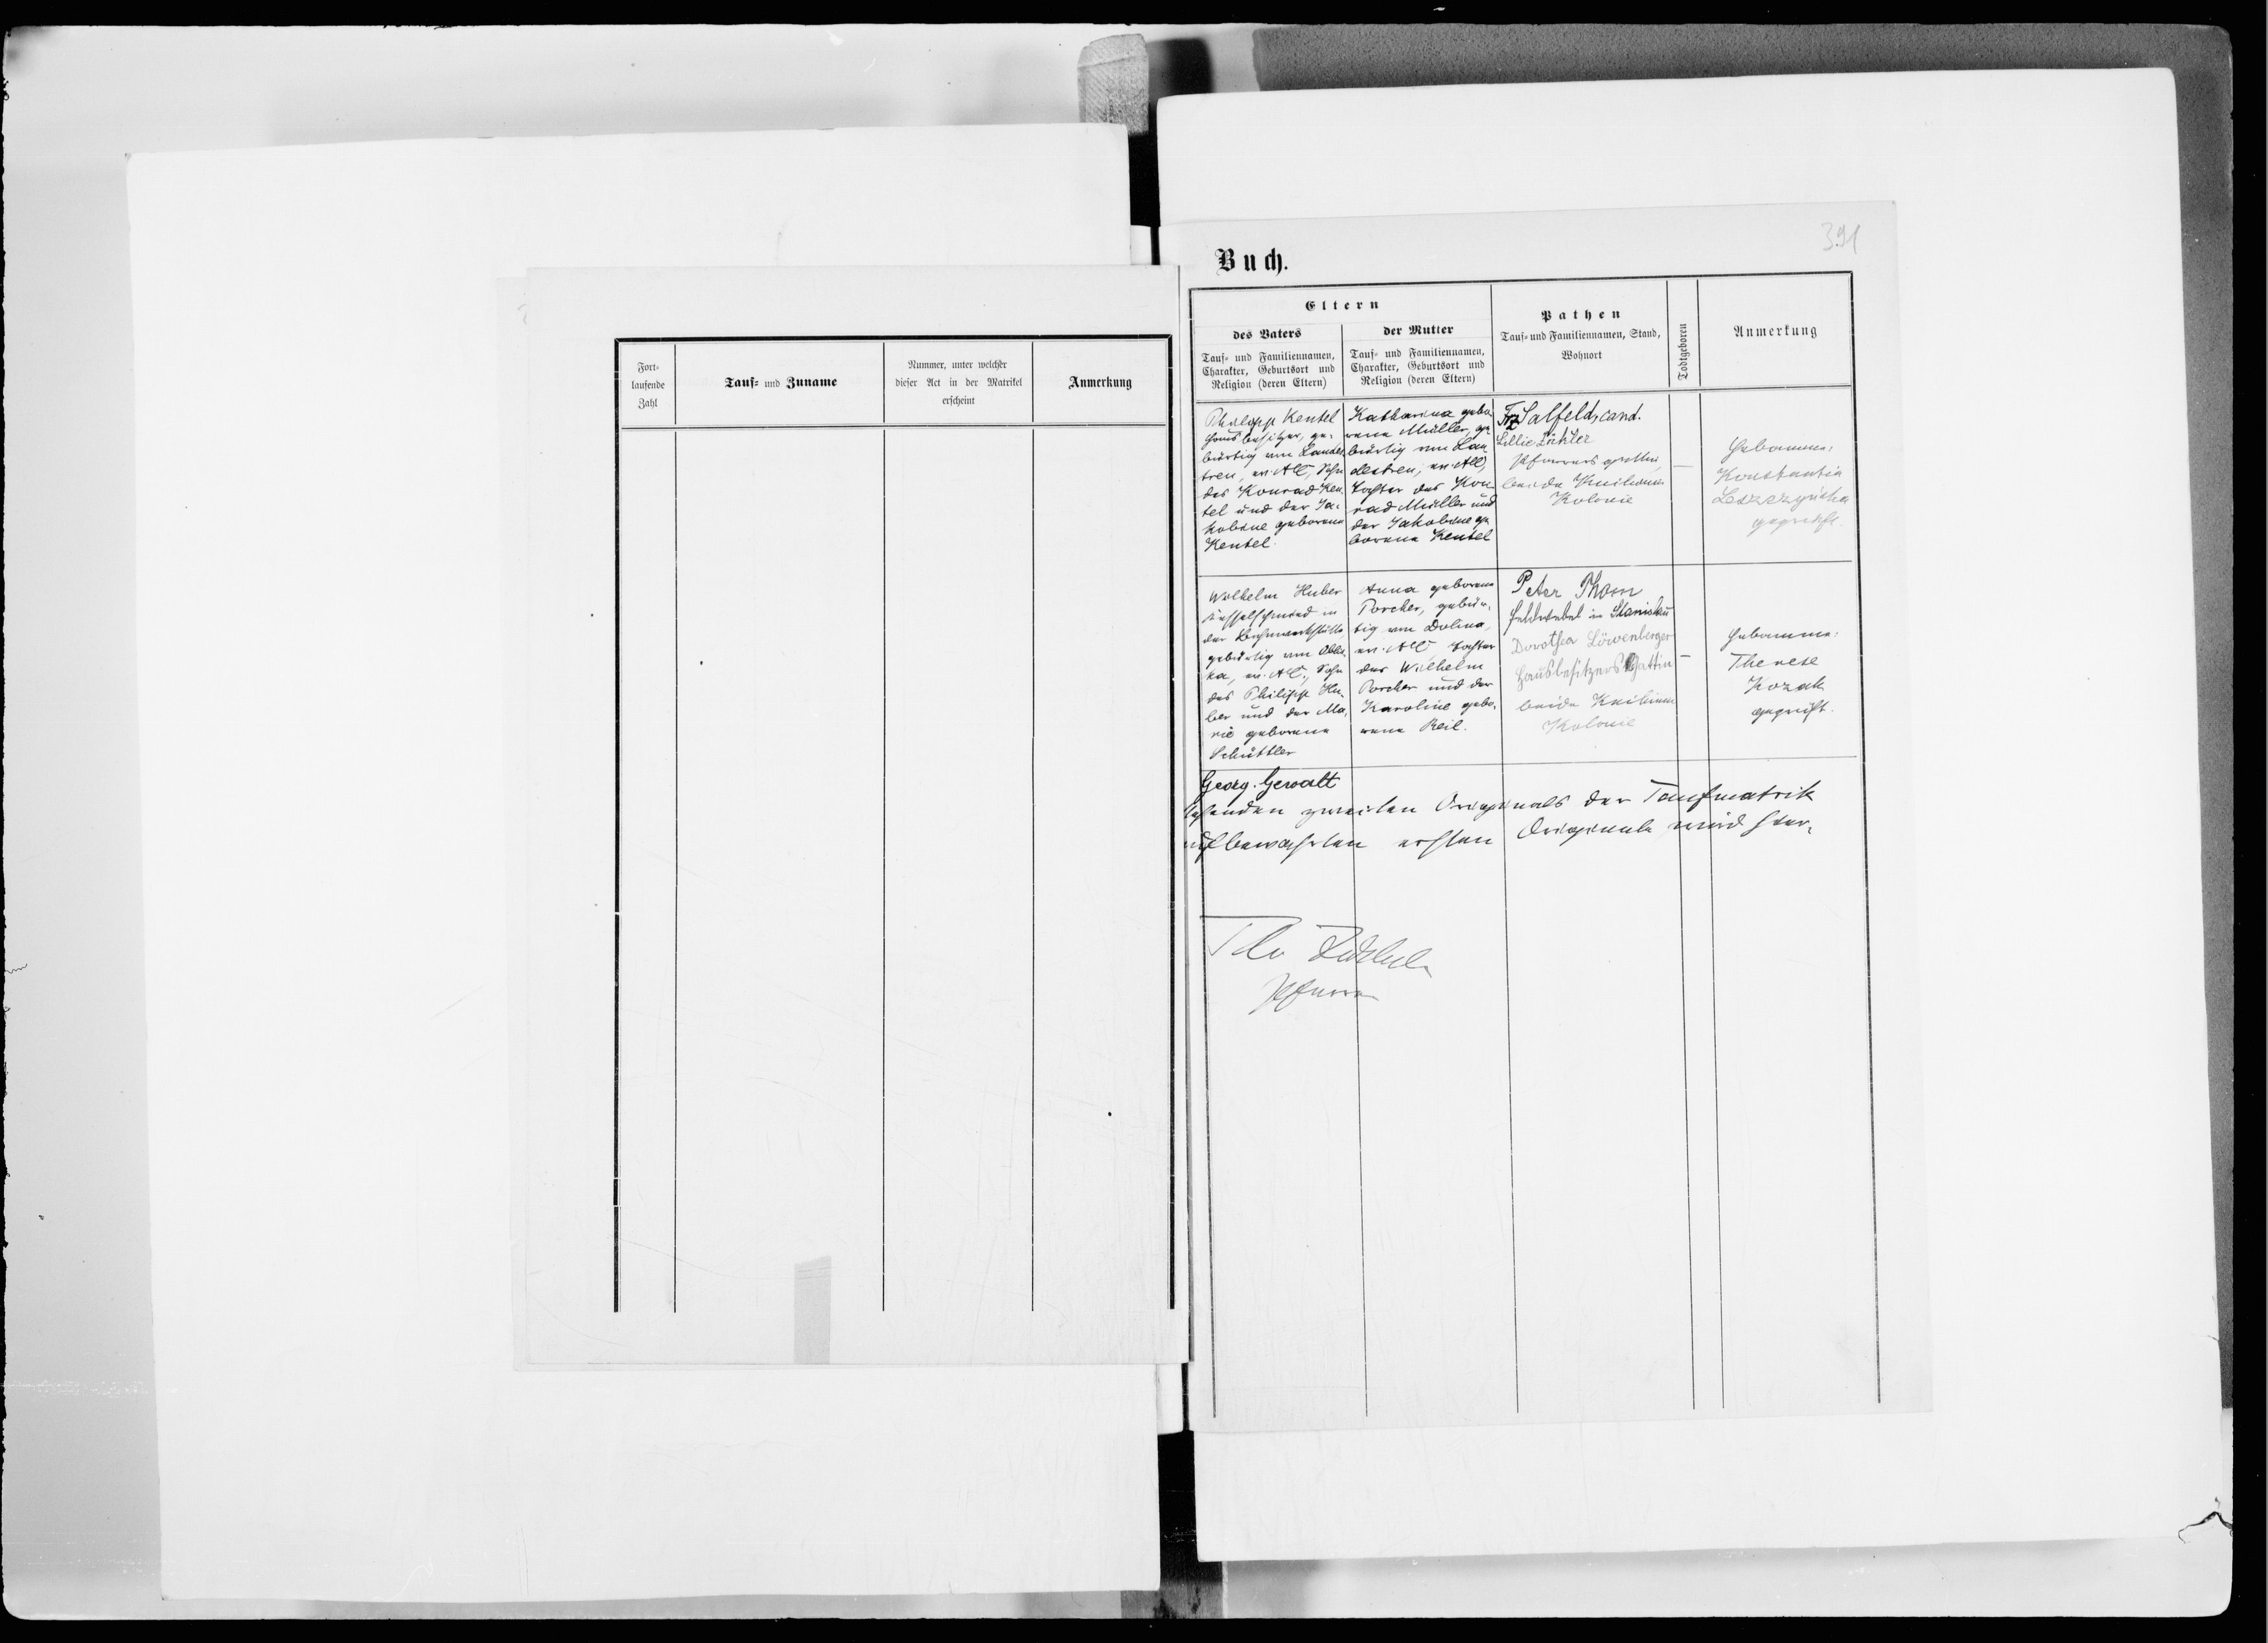 Fort-
laufende
Zahl
Tauf- und Zuname
Nummer, unter welcher
dieser Act in der Matrikel
erscheint
Anmerkung
391
Buch.
Eltern
des Vaters
Tauf- und Familiennamen,
Charakter, Geburtsort und
Religion (deren Eltern)
der Mutter
Tauf- und Familiennamen,
Charakter, Geburtsort und
Religion (deren Eltern)
Pathen
Tauf- und Familiennamen, Stand,
Wohnort
Todtgeboren
Anmerkung
Philipp Kentel
Hausbesitzer, ge-
bürtig von Landes
tren, ev. AC, Sohn
des Konrad Ken
tel und der Ja-
kobine geborene
Kentel.
Katharina gebo
rene Müller, ge
bürtig von Lan
destren, ev. AC,
Tochter des Kon
rad Müller und
der Jakobine ge
borene Kentel
Salfeld, cand.
Lillie
Pfarrers
beide Knihinin
Kolonie
—
Hebamme:
Konstantia
Leszczyńska
geprüft.
Wilhelm Huber
Kesselschmied in
der Bahnwerkstätte
gebürtig von
ka, ev. AC., Sohn
des Philipp Hu-
ber und der Ma-
rie geborene
Schüttler
Anna geborene
Porcher, gebür-
tig von Dolina,
ev. AC, Tochter
des Wilhelm
Porcher und der
Karoline gebo-
rene Keil.
Peter Thom
Feldwebel in Stanislau
Dorothea Löwenberger
Hausbesitzers Gattin
beide Knihinin
Kolonie
—
Hebamme:
Therese
Kozak
geprüft.
Georg. Gewalt
zweiten Originals der Taufmatrik
aufbewahrten ersten Originale wird hier-
Pfarrer